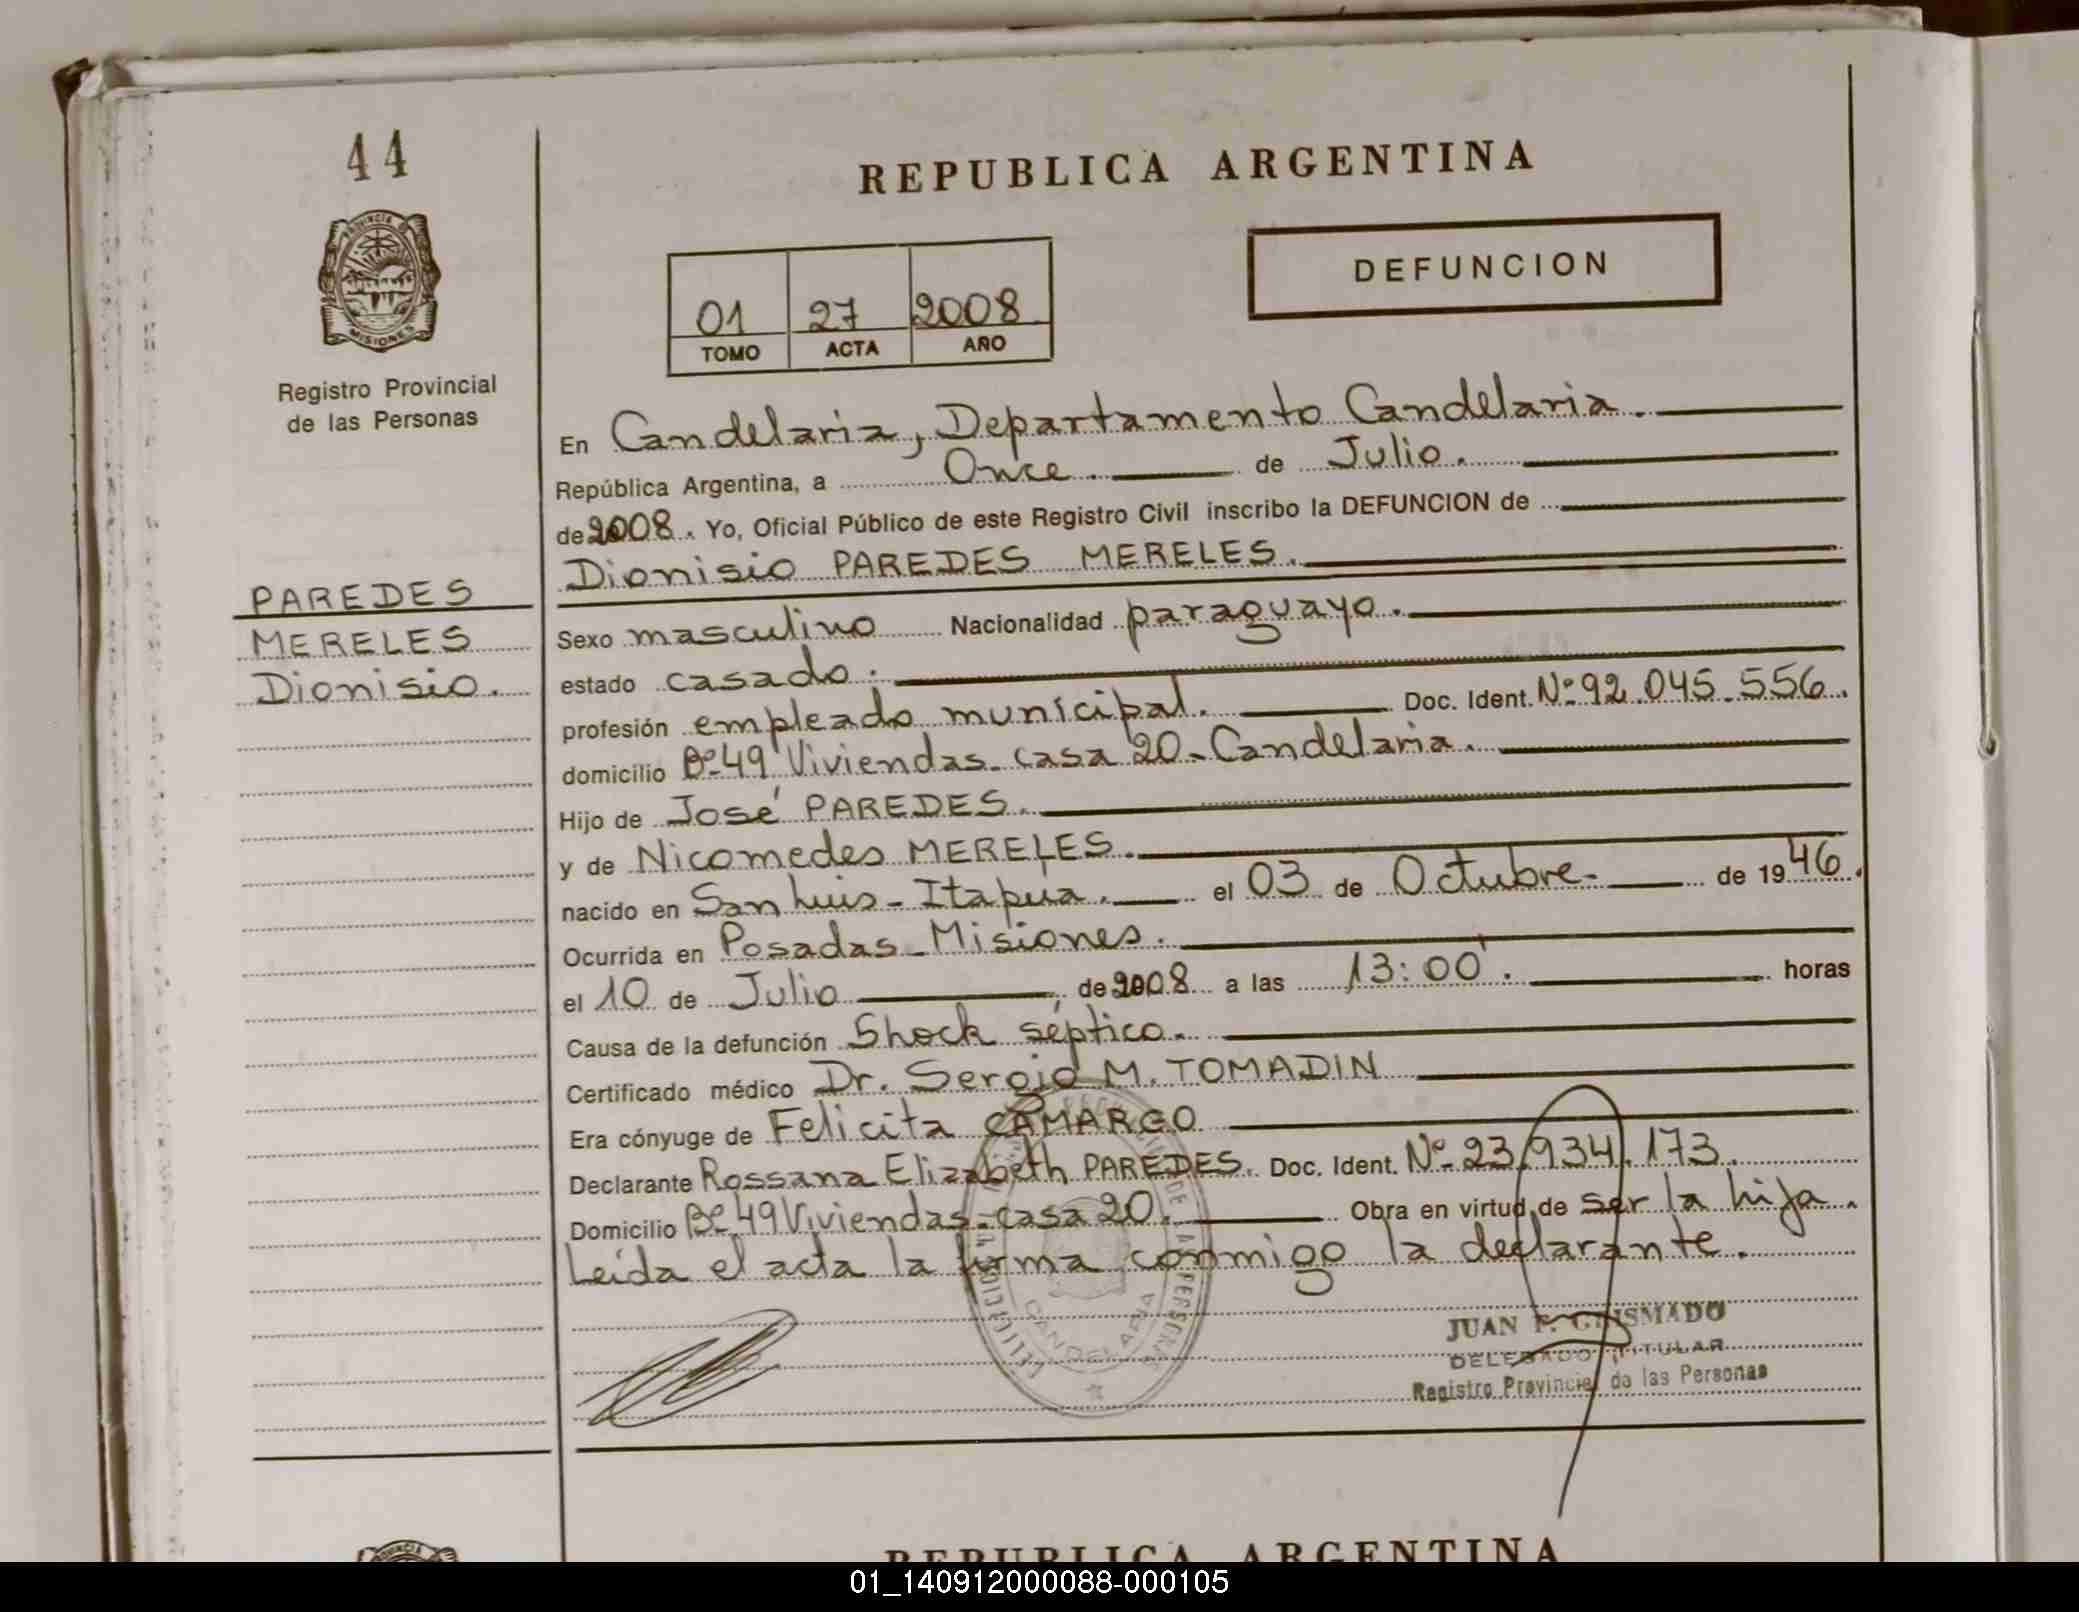 44
REPUBLICA ARGENTINA
PROVINCIA
MISIONES
DEFUNCION
01 27 2008
TOMO ACTA AÑO
Registro Provincial
de las Personas
PAREDES
MERELES
Dionisio.
En Candelaria, Departamento Candelaria.
República Argentina, a Once. de Julio.
de 2008. Yo, Oficial Público de este Registro Civil inscribo la DEFUNCION de
Dionisio PAREDES MERELES.
Sexo masculino Nacionalidad paraguayo.
estado casado.
profesión empleado municipal. Doc. Ident. Nº 92.045.556.
domicilio Bº 49 Viviendas. casa 20 - Candelaria.
Hijo de José PAREDES.
y de Nicomedes MERELES.
nacido en San Luis - Itapua. el 03 de Octubre - de 1946.
Ocurrida en Posadas - Misiones.
el 10 de Julio de 2008 a las 13:00'. horas
Causa de la defunción Shock séptico.
Certificado médico Dr. Sergio M. TOMADIN
Era cónyuge de Felicita CAMARGO
Declarante Rossana Elizabeth PAREDES. Doc. Ident. Nº 23.934.173.
Domicilio Bº 49 Viviendas - casa 20. Obra en virtud de ser la hija.
Leída el acta la firma conmigo la declarante.
CANDELARIA
JUAN
DELEGADO TITULAR
Registro Provincial de las Personas
REPUBLICA ARGENTINA
01_140912000088-000105